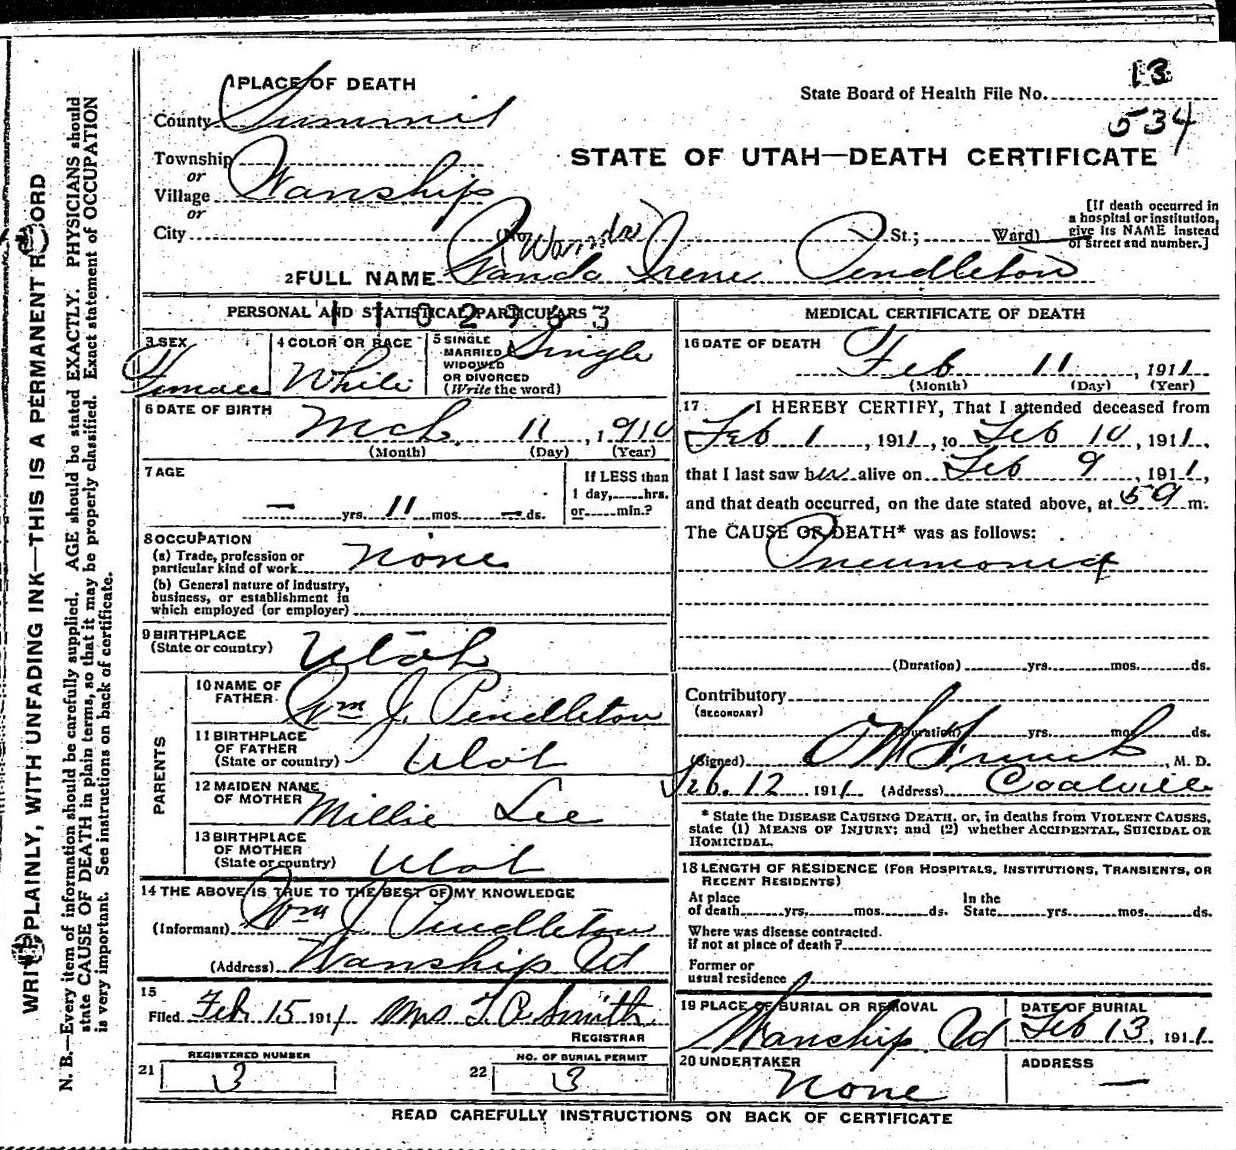 WRITE PLAINLY, WITH UNFADING INK—THIS IS A PERMANENT RECORD
N. B.—Every item of information should be carefully supplied. AGE should be stated EXACTLY. PHYSICIANS should
state CAUSE OF DEATH in plain terms, so that it may be properly classified. Exact statement of OCCUPATION
is very important. See instructions on back of certificate.
1 PLACE OF DEATH
State Board of Health File No. 13
534
County Summit
STATE OF UTAH—DEATH CERTIFICATE
Township
or
Village Wanship
or
City (No. St.; Ward)
[If death occurred in
a hospital or institution,
give its NAME instead
of street and number.]
(Wanda)
2 FULL NAME Wanda Irene Pendleton
PERSONAL AND STATISTICAL PARTICULARS
1102953
3 SEX
Female
4 COLOR OR RACE
White
5 SINGLE
MARRIED
WIDOWED
OR DIVORCED
(Write the word)
Single
6 DATE OF BIRTH
Mch. 11, 1910
(Month) (Day) (Year)
7 AGE
— yrs. 11 mos. — ds.
If LESS than
1 day, hrs.
or min.?
8 OCCUPATION
(a) Trade, profession or
particular kind of work None
(b) General nature of industry,
business, or establishment in
which employed (or employer)
9 BIRTHPLACE
(State or country) Utah
PARENTS
10 NAME OF
FATHER Wm J. Pendleton
11 BIRTHPLACE
OF FATHER
(State or country) Utah
12 MAIDEN NAME
OF MOTHER Millie Lee
13 BIRTHPLACE
OF MOTHER
(State or country) Utah
14 THE ABOVE IS TRUE TO THE BEST OF MY KNOWLEDGE
(Informant) Wm J. Pendleton
(Address) Wanship Ud
15
Filed Feb 15 1911 Mrs T. R. Smith
REGISTRAR
REGISTERED NUMBER
21 3
NO. OF BURIAL PERMIT
22 3
MEDICAL CERTIFICATE OF DEATH
16 DATE OF DEATH
Feb 11, 1911
(Month) (Day) (Year)
17 I HEREBY CERTIFY, That I attended deceased from
Feb 1, 1911, to Feb 10, 1911,
that I last saw her alive on Feb 9, 1911,
and that death occurred, on the date stated above, at 5 a m.
The CAUSE OF DEATH* was as follows:
Pneumonia
(Duration) yrs. mos. ds.
Contributory
(SECONDARY)
(Duration) yrs. mos. ds.
(Signed) , M. D.
Feb. 12 1911 (Address) Coalville
* State the DISEASE CAUSING DEATH, or, in deaths from VIOLENT CAUSES,
state (1) MEANS OF INJURY; and (2) whether ACCIDENTAL, SUICIDAL OR
HOMICIDAL.
18 LENGTH OF RESIDENCE (FOR HOSPITALS, INSTITUTIONS, TRANSIENTS, OR
RECENT RESIDENTS)
At place
of death yrs. mos. ds.
In the
State yrs. mos. ds.
Where was disease contracted.
if not at place of death?
Former or
usual residence
19 PLACE OF BURIAL OR REMOVAL
Wanship Ud
DATE OF BURIAL
Feb 13, 1911
20 UNDERTAKER
None
ADDRESS
—
READ CAREFULLY INSTRUCTIONS ON BACK OF CERTIFICATE